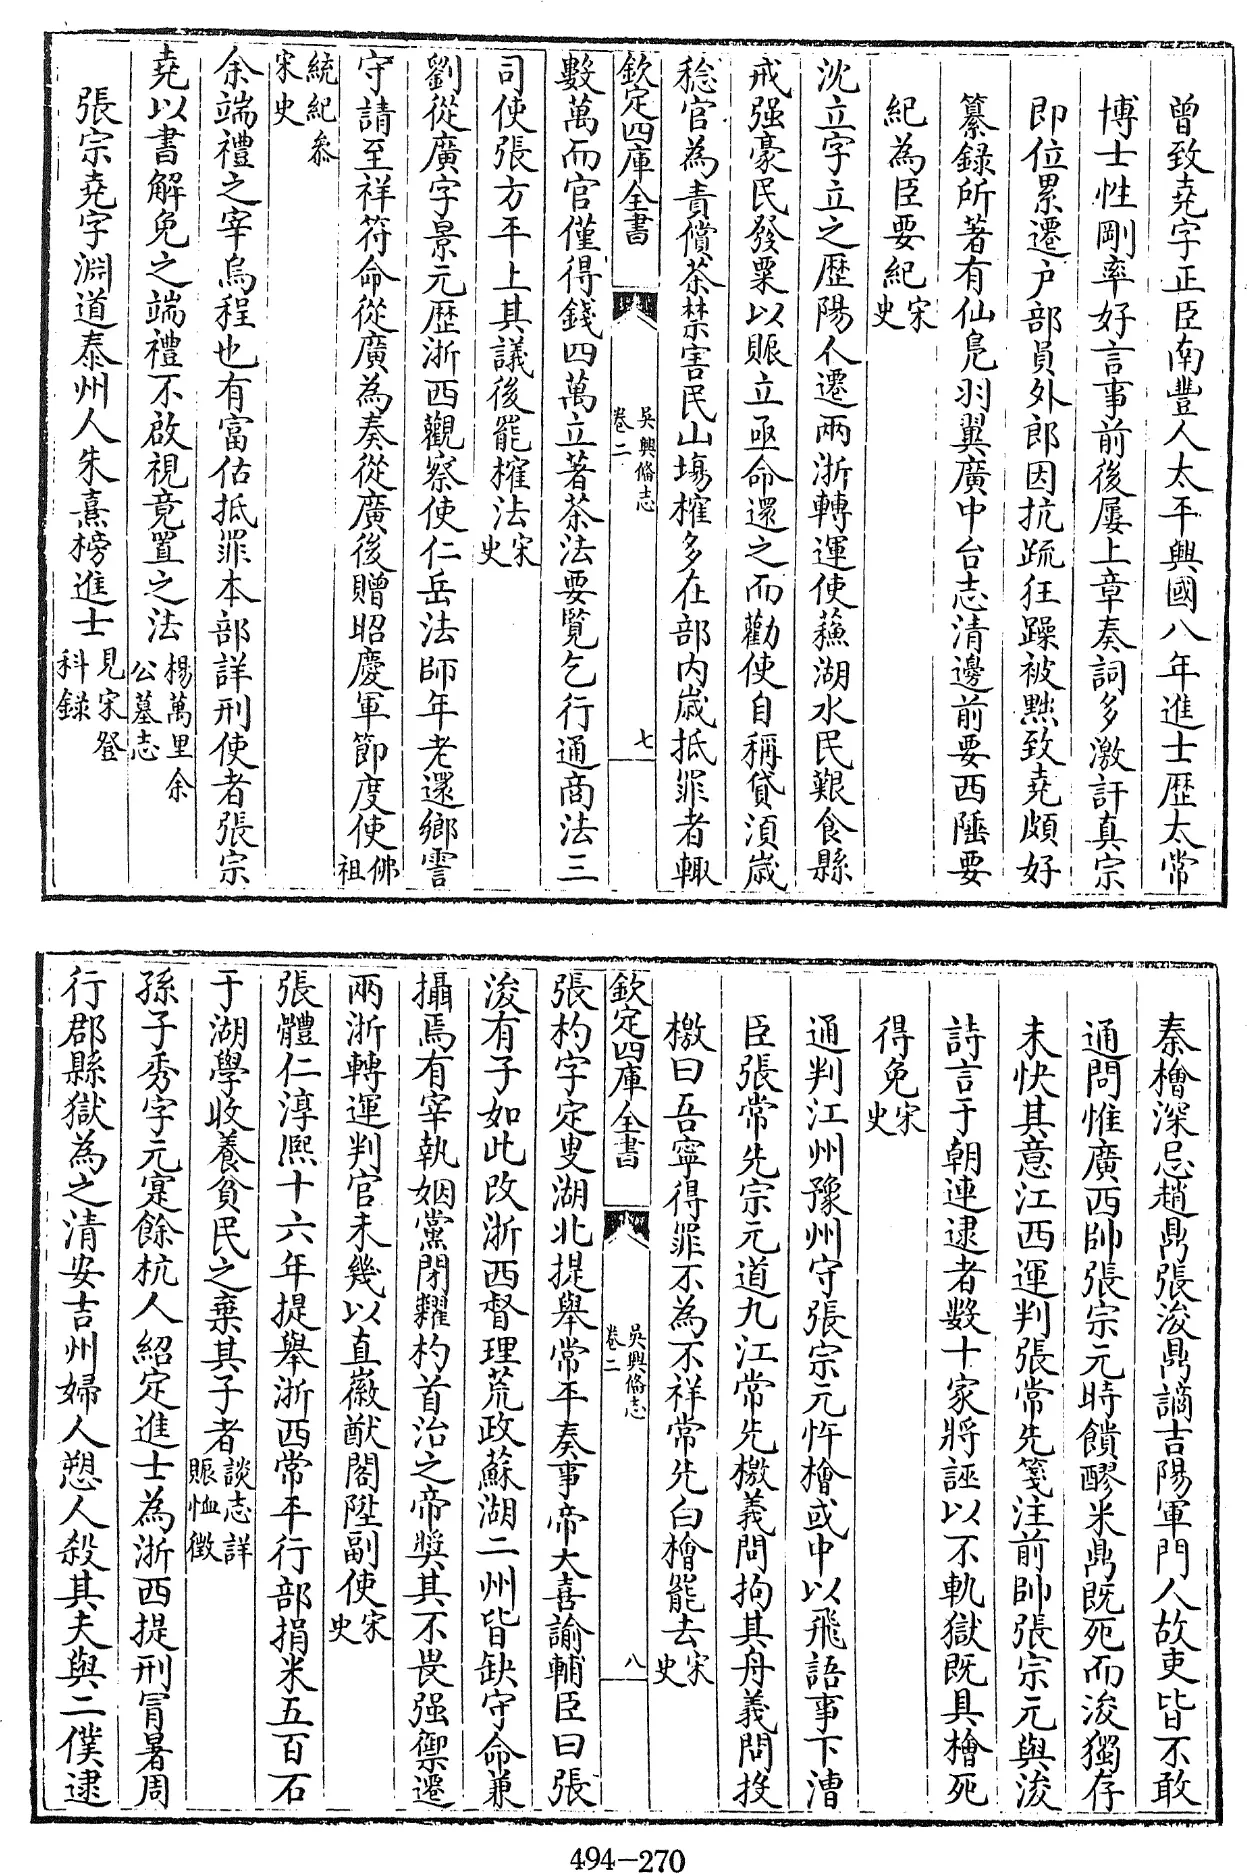 曾致堯字正臣南豐人太平興國八年進士歴太常
博士性剛率好言事前後屢上章奏詞多激訐真宗
即位累遷户部員外郎因抗疏狂躁被黜致堯頗好
纂録所著有仙鳬羽翼廣中台志清邊前要西陲要
紀為臣要紀宋史
沈立字立之歴陽人遷兩浙轉運使蘓湖水民艱食縣
戒强豪民發粟以賑立亟命還之而勸使自稱貸湏歳
稔官為責償茶禁害民山塲榷多在部内歳抵罪者輒
欽定四庫全書
吳興備志
卷二
七
數萬而官僅得錢四萬立著茶法要覧乞行通商法三
司使張方平上其議後罷榷法宋史
劉從廣字景元歴浙西觀察使仁岳法師年老還鄉霅
守請至祥符命從廣為奏從廣後贈昭慶軍節度使佛祖
統紀叅宋史
余端禮之宰烏程也有富估抵罪本部詳刑使者張宗
堯以書解免之端禮不啟視竟置之法楊萬里余公墓志
張宗堯字淵道泰州人朱熹榜進士見宋登科録
秦檜深忌趙鼎張浚鼎謫吉陽軍門人故吏皆不敢
通問惟廣西帥張宗元時饋醪米鼎既死而浚獨存
未快其意江西運判張常先箋注前帥張宗元與浚
詩言于朝連逮者數十家將誣以不軌獄既具檜死
得免宋史
通判江州豫州守張宗元忤檜或中以飛語事下漕
臣張常先宗元道九江常先檄義問拘其舟義問投
檄曰吾寧得罪不為不祥常先白檜罷去宋史
欽定四庫全書
吳興備志
卷二
八
張杓字定叟湖北提舉常平奏事帝大喜諭輔臣曰張
浚有子如此改浙西督理荒政蘇湖二州皆缺守命兼
攝焉有宰執姻黨閉糶杓首治之帝奬其不畏强禦遷
兩浙轉運判官未幾以直徽猷閣陞副使宋史
張體仁淳熙十六年提舉浙西常平行部捐米五百石
于湖學收養貧民之棄其子者談志詳賑恤徵
孫子秀字元寔餘杭人紹定進士為浙西提刑冐暑周
行郡縣獄為之清安吉州婦人愬人殺其夫與二僕逮
494-270